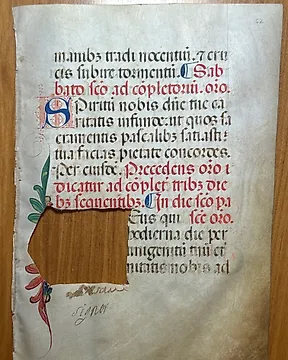 manibꝫ tradi nocentiū. ⁊ cru
cis subire tormentū. Sab
bato sc̄o ad cōpletoriū. or̄o.
Spiritū nobis dn̄e tue ca
ritatis infunde: ut quos sa
cramentis pascalibꝫ satiasti:
tua facias pietate concordes.
Per eiusdē. Precedens or̄o i
dicatur ad cōplet̄. tribꝫ die
bꝫ sequentibꝫ. In die sc̄o pa
eus qui sc̄e or̄o.
hodierna die per
unigenitū tuū et
nitatis nobis ad